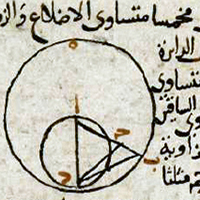 مخمسا متساوى الاضلاع والزو
الدايرة
متساوى
الساقين
زاوية
مثلثا
ه
ا
ح
ب
د